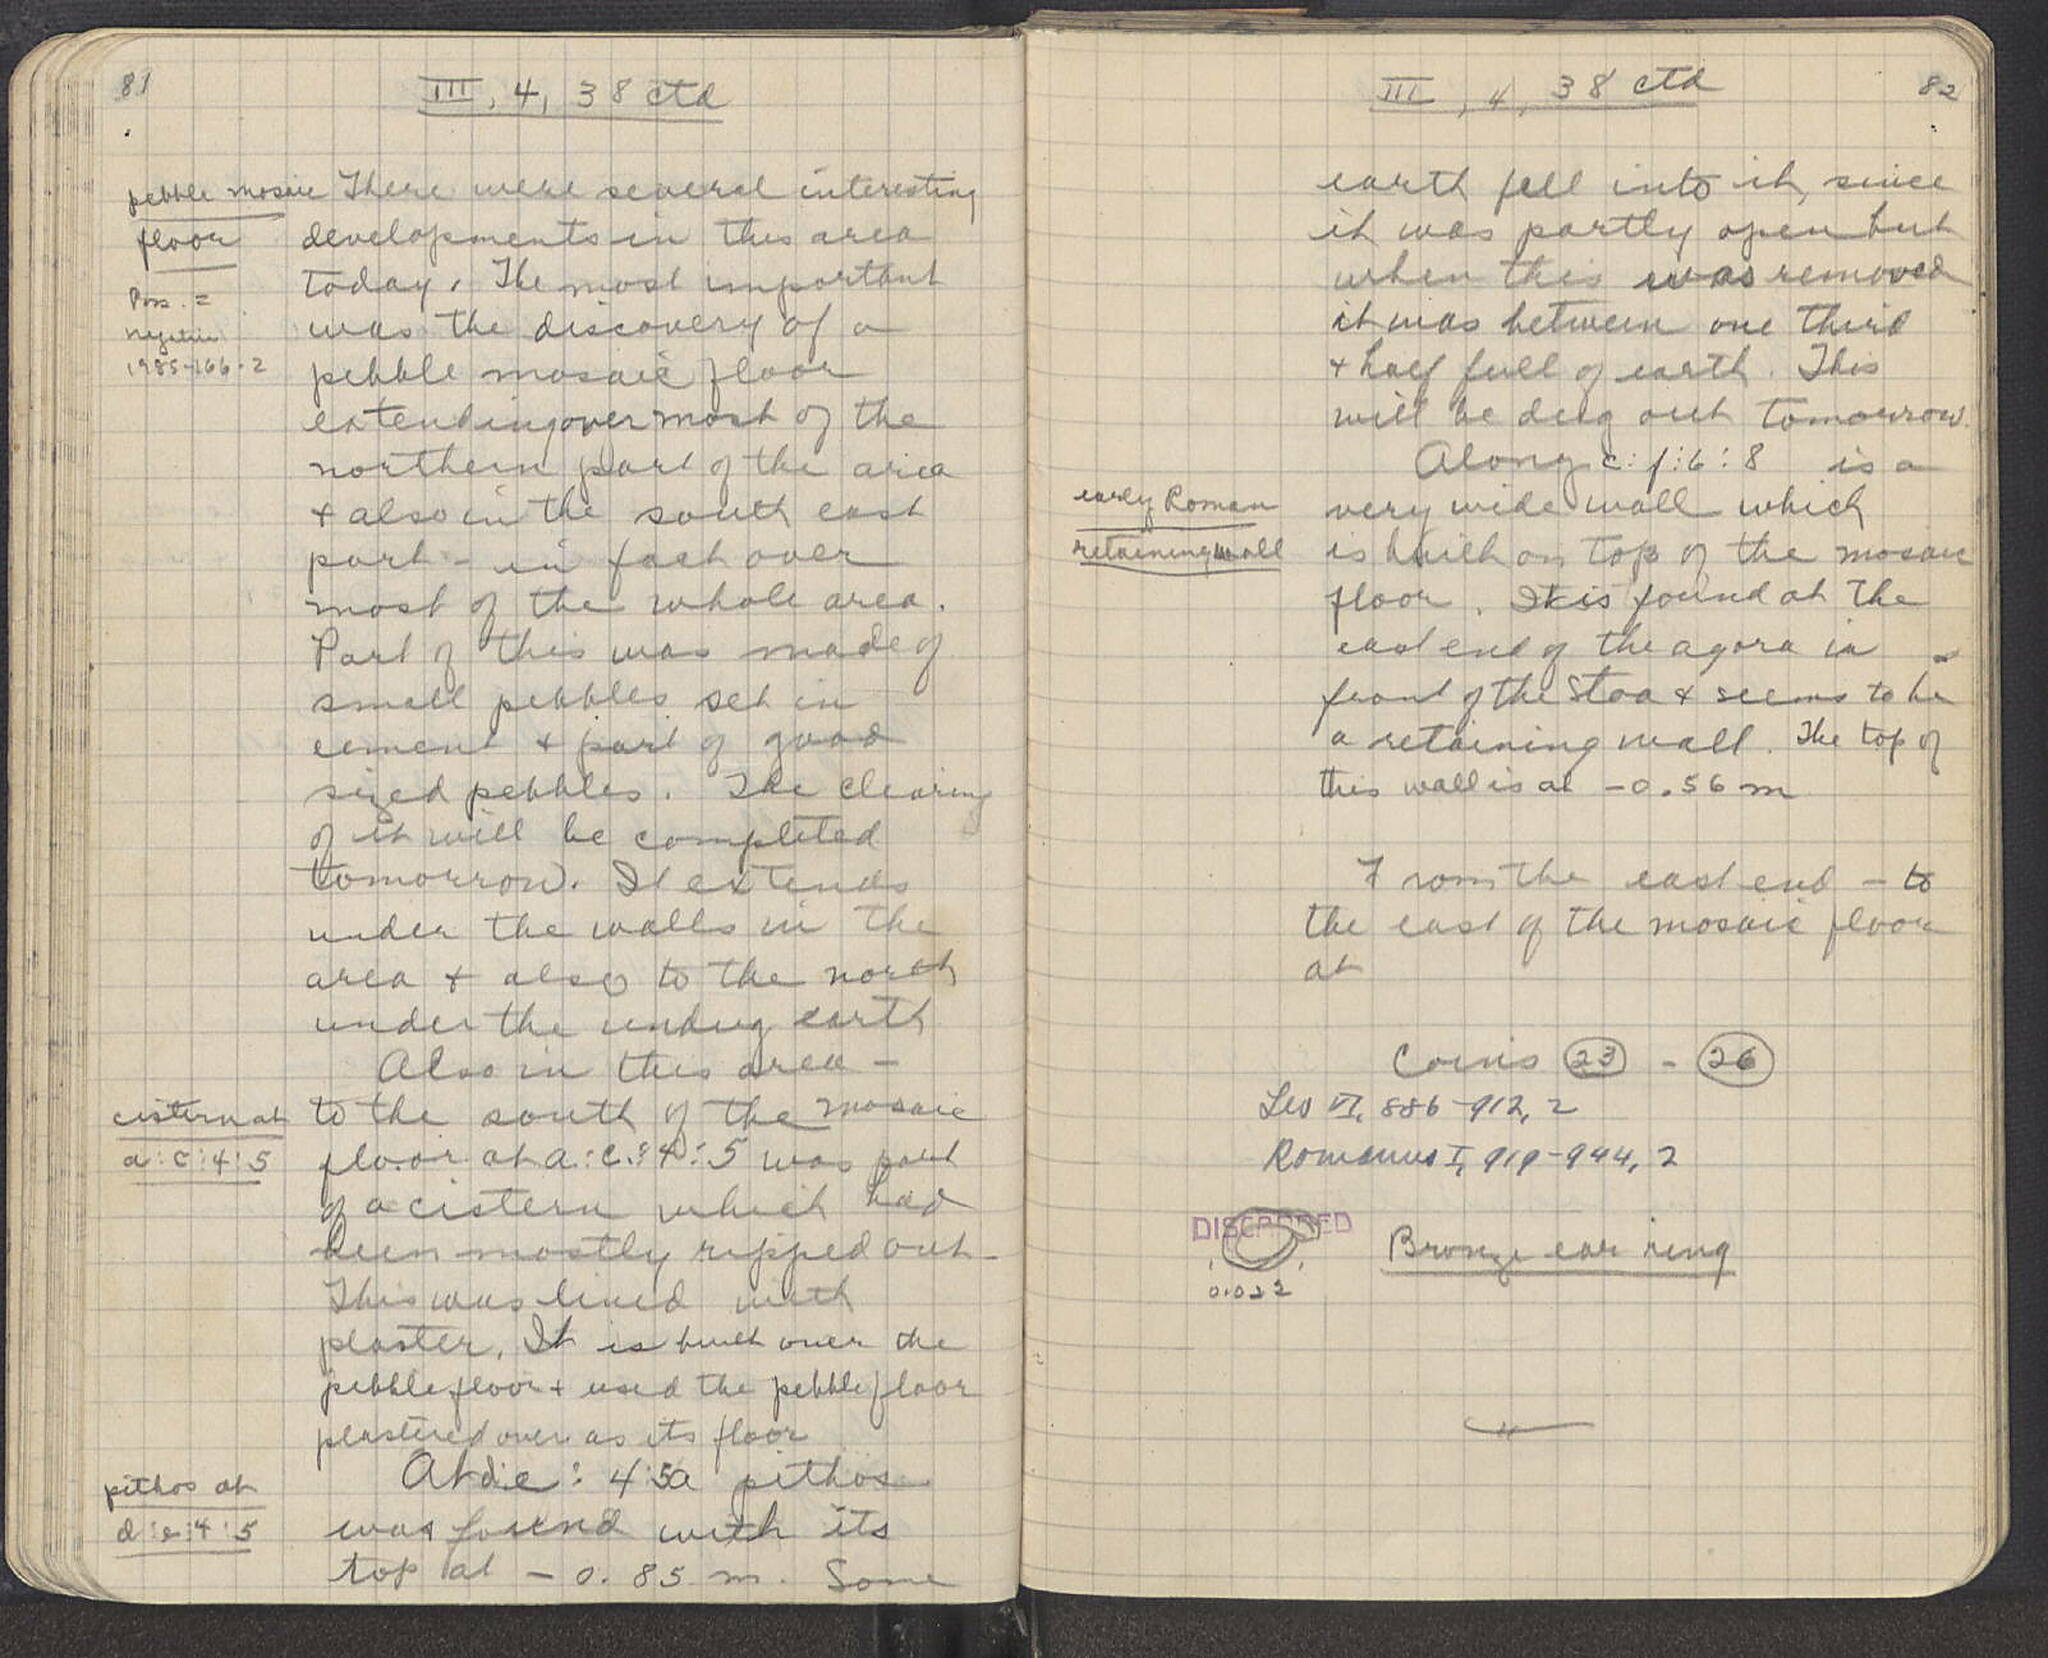 81
III, 4, 38 ctd
pebble mosaic
floor
Poss. =
negative
1985-166-2
There were several interesting
developments in this area
today. The most important
was the discovery of a
pebble mosaic floor
extending over most of the
northern part of the area
+ also in the south east
part - in fact over
most of the whole area.
Part of this was made of
small pebbles set in
cement + part of good
sized pebbles. The clearing
of it will be completed
tomorrow. It extends
under the walls in the
area + also to the north
under the undug earth
Also in this area -
cistern at
a:c:4:5
to the south of the mosaic
floor at a:c:4:5 was part
of a cistern which had
been mostly ripped out -
This was lined with
plaster. It is built over the
pebble floor + used the pebble floor
plastered over as its floor
pithos at
d:e:4:5
At d:e:4:5 a pithos
was found with its
top at - 0.85 m. Some
82
III, 4, 38 ctd
earth fell into it, since
it was partly open but
when this was removed
it was between one third
+ half full of earth. This
will be dug out tomorrow.
Along c:f:6:8 is a
early Roman
retaining wall
very wide wall which
is built on top of the mosaic
floor. It is found at the
east end of the agora in
front of the Stoa + seems to be
a retaining wall. The top of
this wall is at -0.56 m
From the east end - to
the east of the mosaic floor
at
Coins 23 - 26
Leo VI, 886-912, 2
Romanus I, 919-944, 2
DISCARDED
0.022
Bronze ear ring